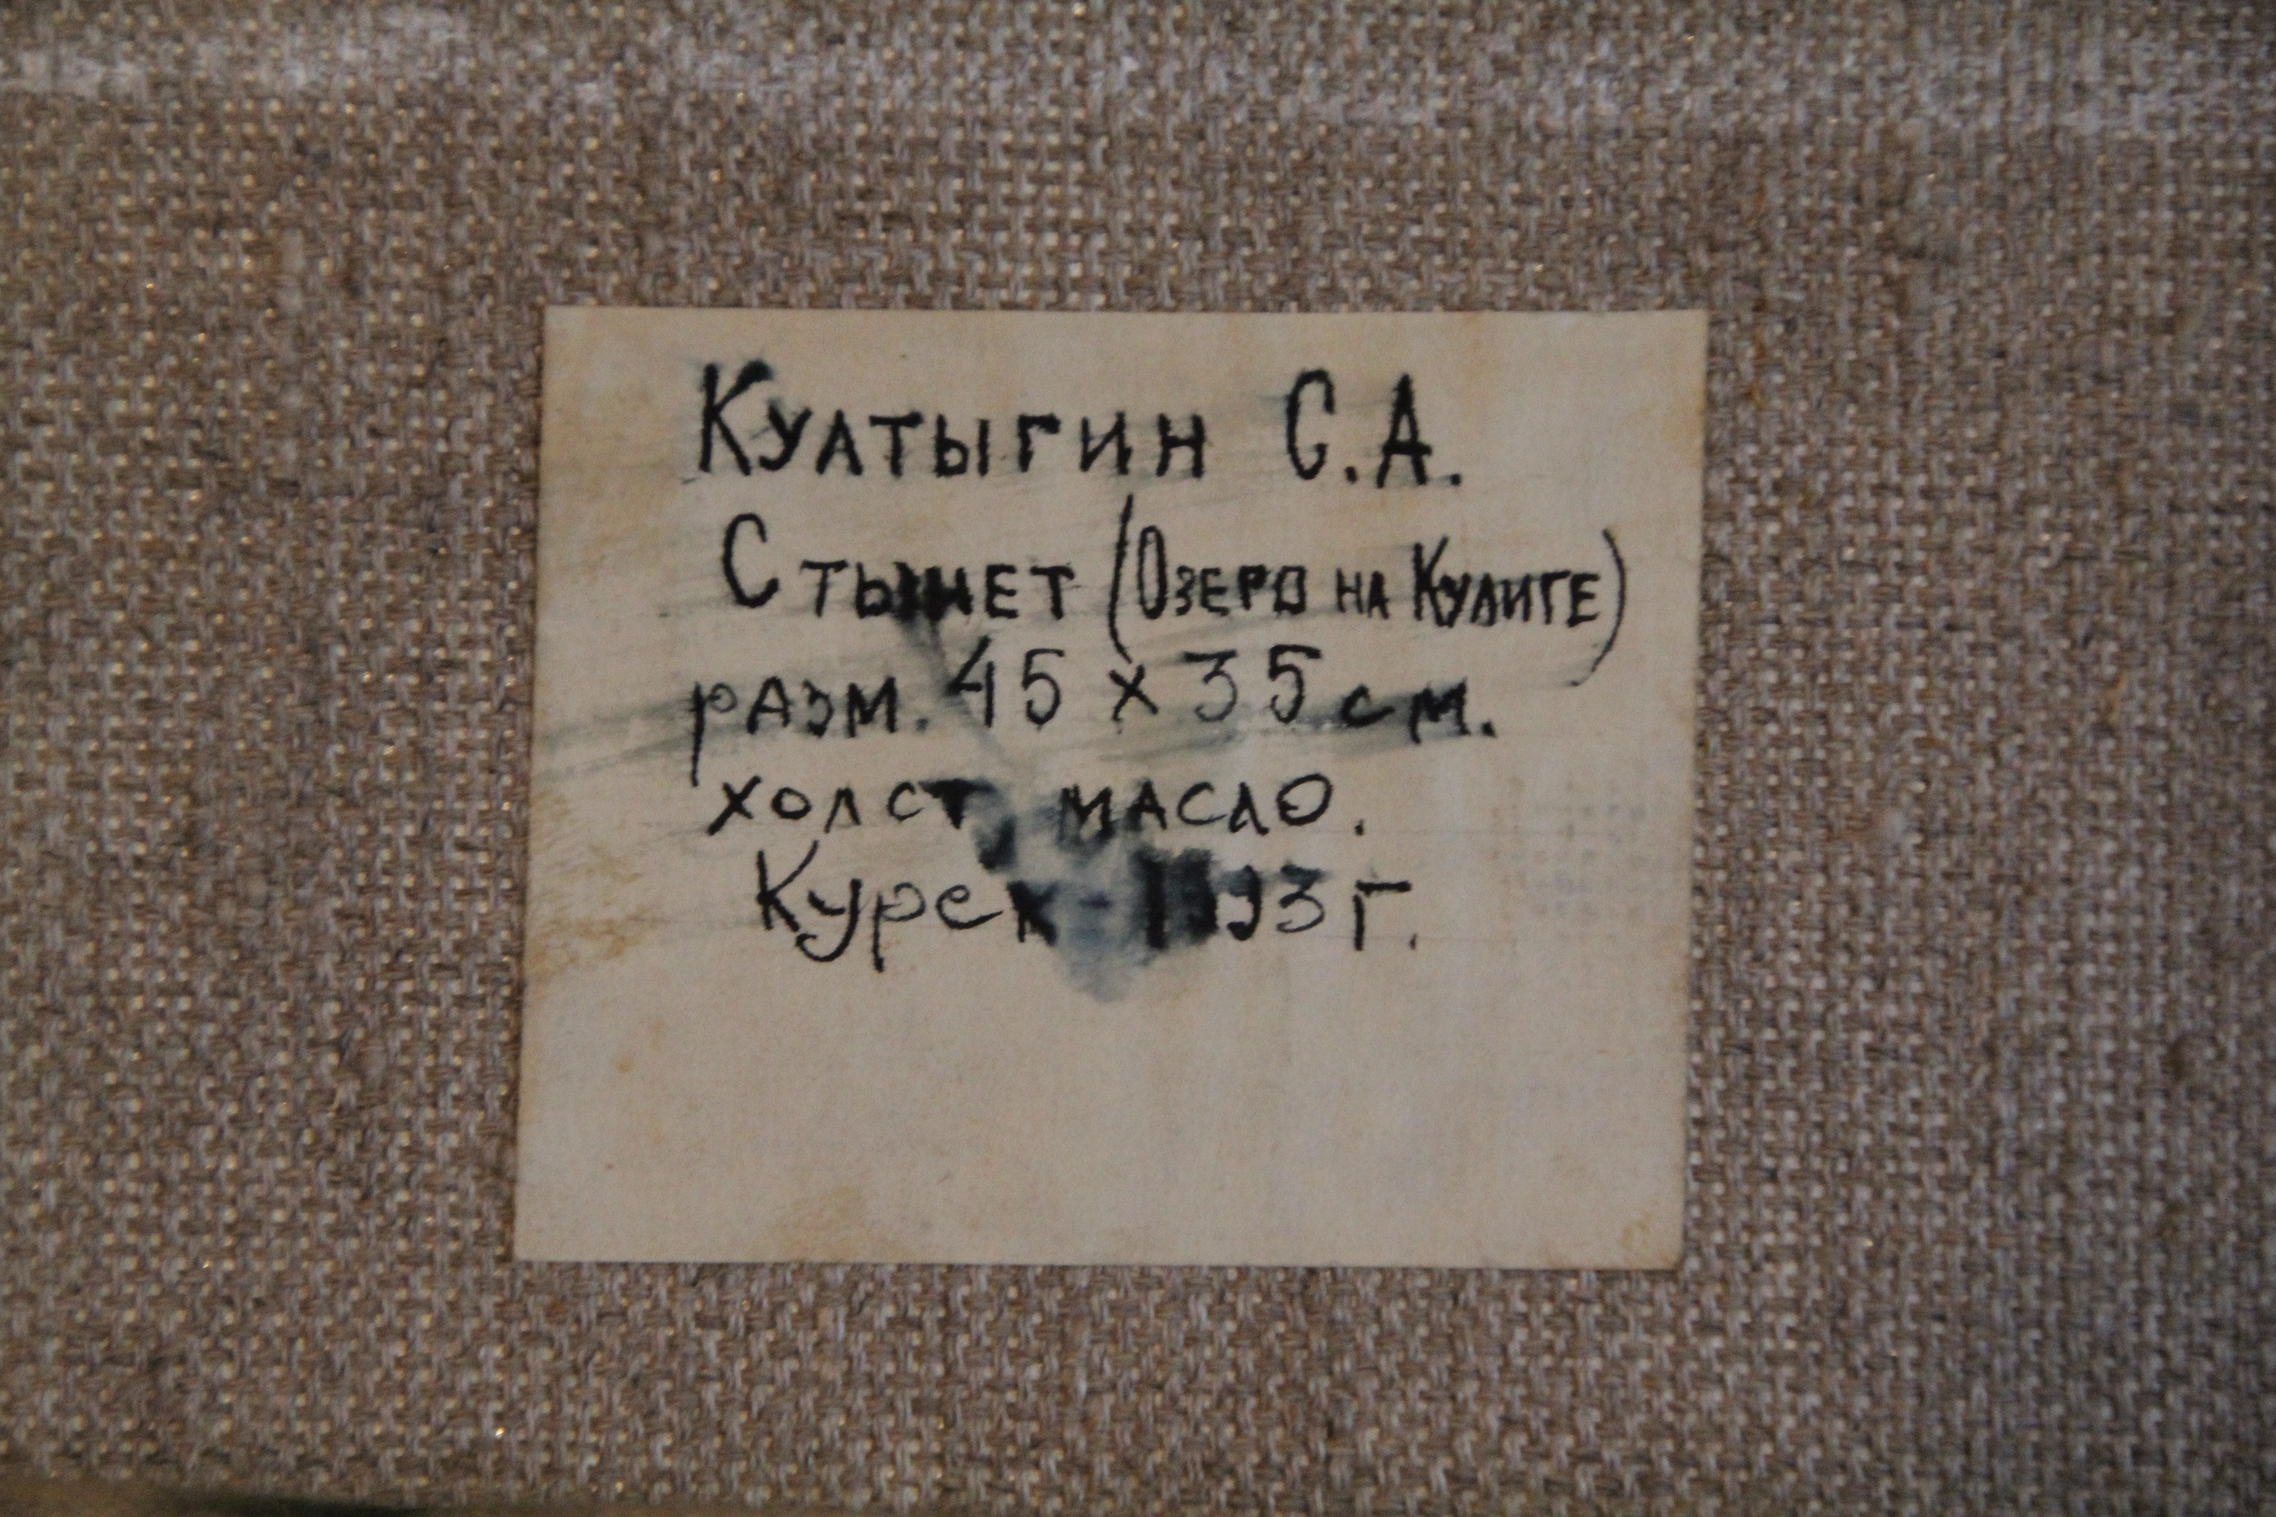 Култыгин С.А.
Стынет (Озеро на Кулиге)
разм. 45 x 35 см.
холст масло.
Курск - 1993 г.